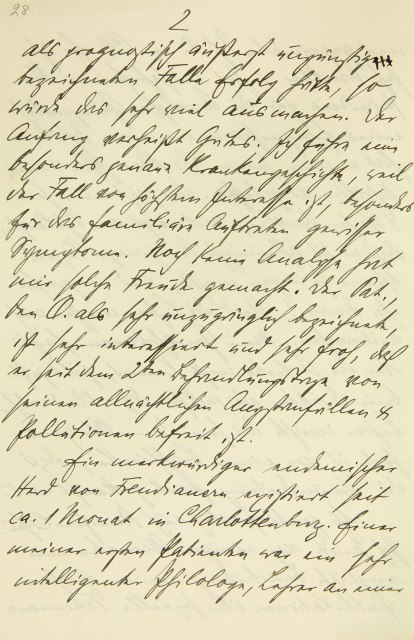 28
2
als prognostisch äußerst ungünstig
bezeichneten Falle Erfolg hätte, so
würde das sehr viel ausmachen. Der
Anfang verheißt Gutes. Ich führe eine
besonders genaue Krankengeschichte, weil
der Fall von höchstem Interesse ist, besonders
für das familiäre Auftreten gewisser
Symptome. Noch keine Analyse hat
mir solche Freude gemacht. Der Pat.,
den O. als sehr unzugänglich bezeichnete,
ist sehr interessiert und sehr froh, daß
er seit dem 2ten Behandlungstage von
seinen allnächtlichen Angstanfällen &
Pollutionen befreit ist.
Ein merkwürdiger endemischer
Herd von Freudianern existiert seit
ca. 1 Monat in Charlottenburg. Einer
meiner ersten Patienten war ein sehr
intelligenter Philologe, Lehrer an einer